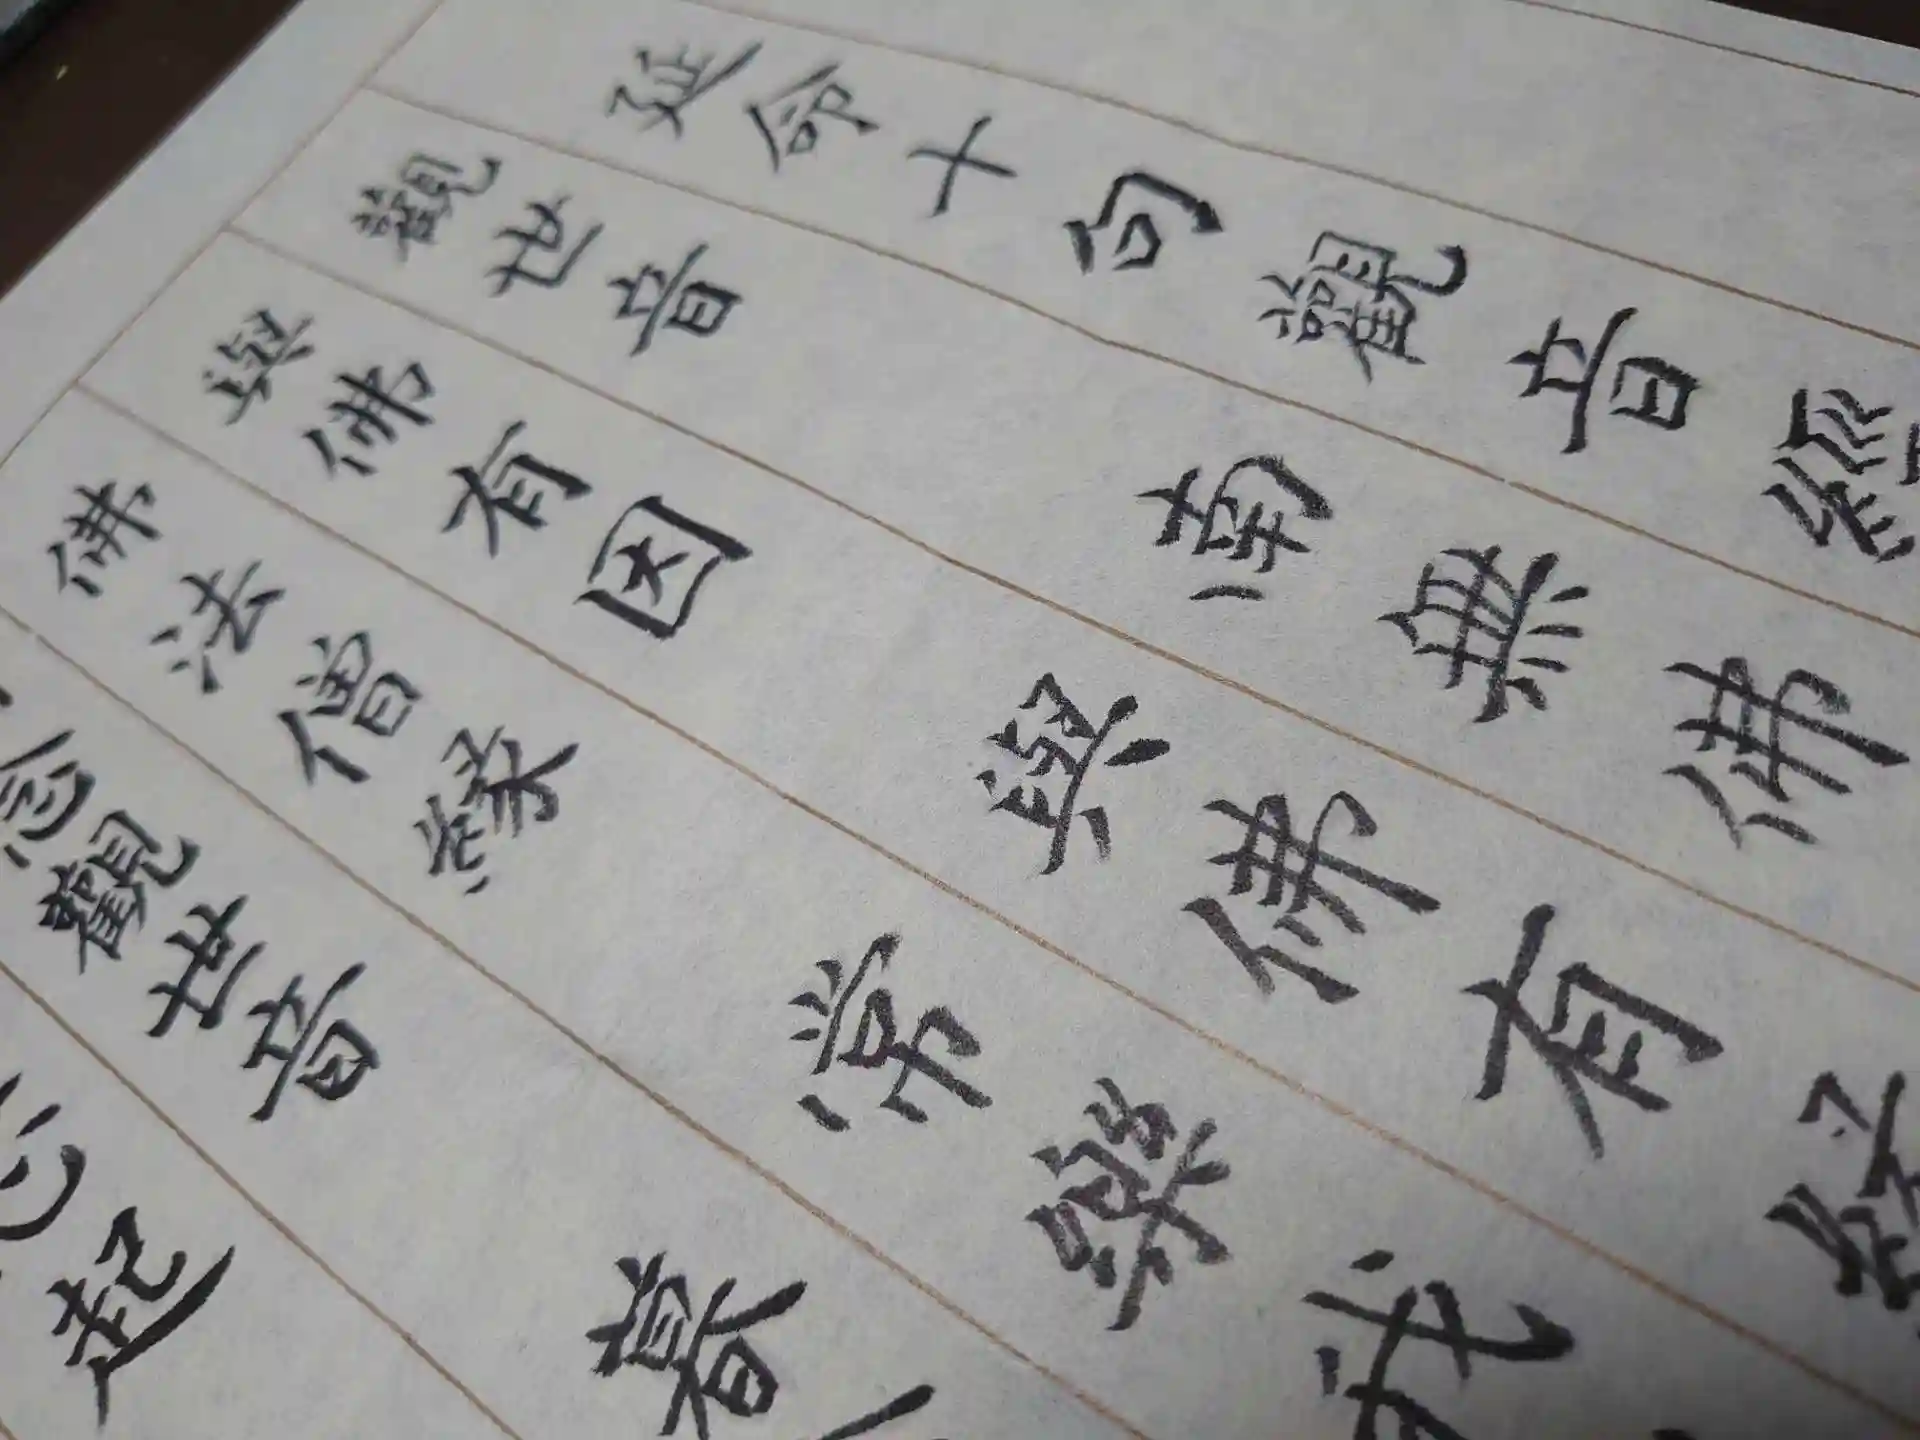 延命十句觀音經
觀世音　南無佛
與佛有因　與佛有縁
佛法僧縁　常樂我
念觀世音　暮
心起